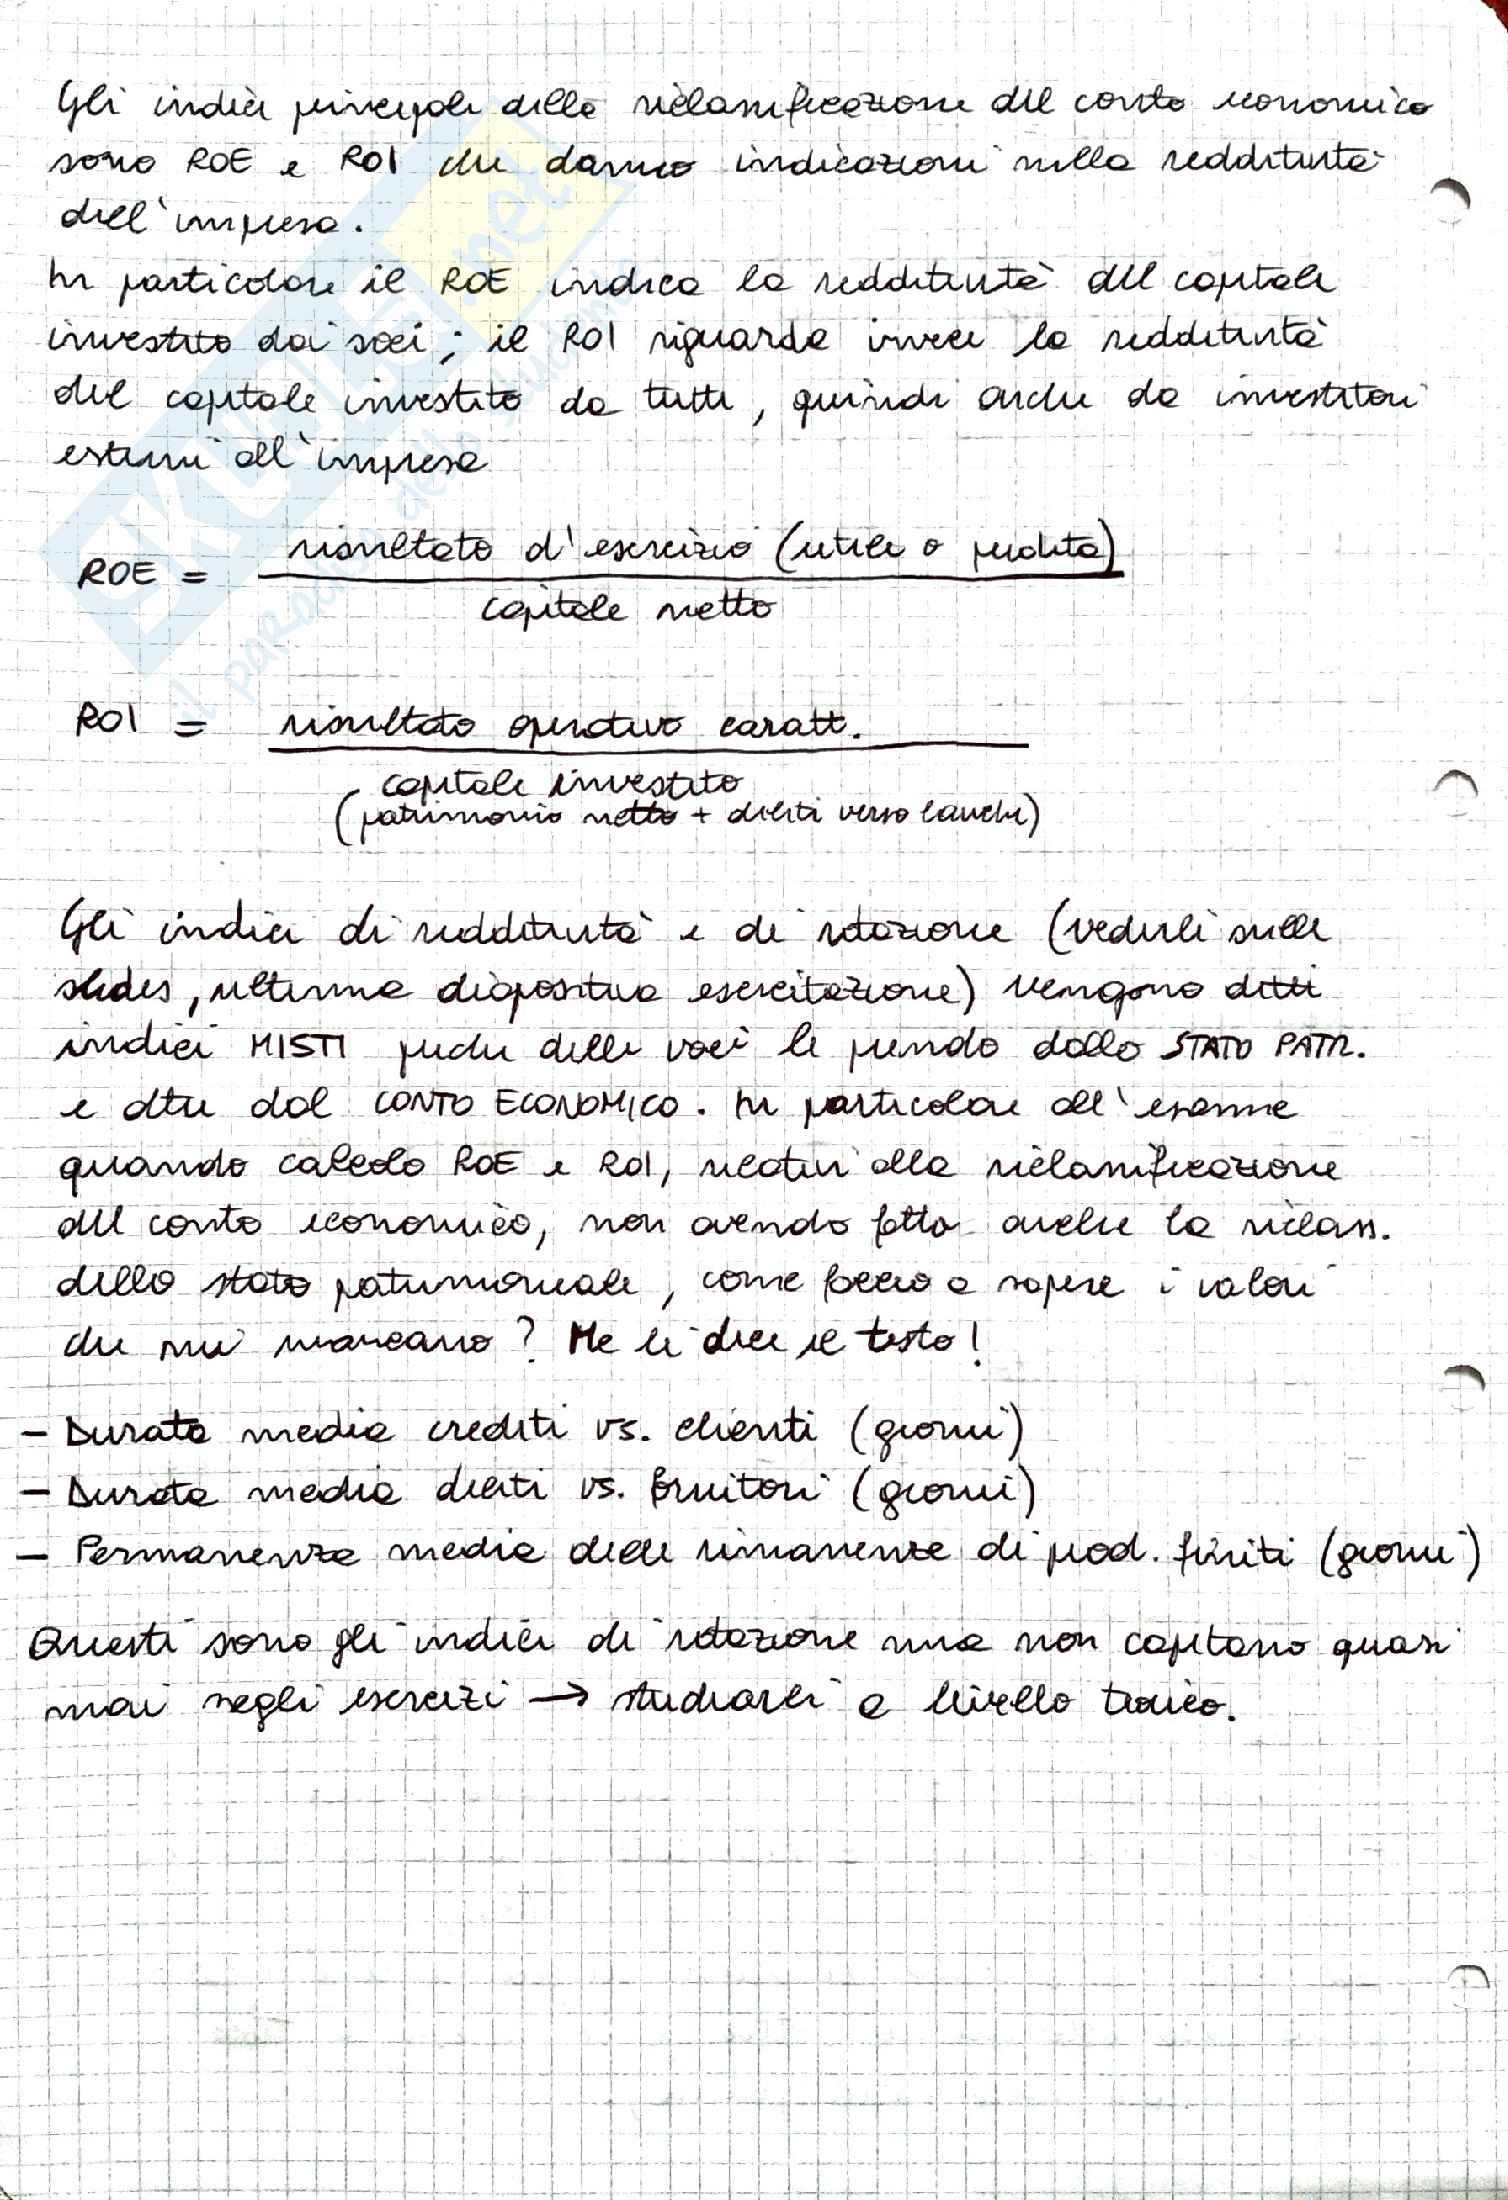 Gli indici principali della riclassificazione del conto economico
sono ROE e ROI che danno indicazioni sulla redditività
dell'impresa.
In particolare il ROE indica la redditività del capitale
investito dai soci; il ROI riguarda invece la redditività
del capitale investito da tutti, quindi anche da investitori
esterni all'impresa
ROE = risultato d'esercizio (utile o perdita)
capitale netto
ROI = risultato operativo caratt.
capitale investito
(patrimonio netto + debiti verso banche)
Gli indici di redditività e di rotazione (vederli sulle
slides, ultima diapositiva esercitazione) vengono detti
indici MISTI perché delle voci le prendo dallo STATO PATR.
e altre dal CONTO ECONOMICO. In particolare all'esame
quando calcolo ROE e ROI, relativi alla riclassificazione
del conto economico, non avendo fatto anche la riclass.
dello stato patrimoniale, come faccio a sapere i valori
che mi mancano? Me li dice il testo!
- Durata media crediti vs. clienti (giorni)
- Durata media debiti vs. fornitori (giorni)
- Permanenza media delle rimanenze di prod. finiti (giorni)
Questi sono gli indici di rotazione ma non capitano quasi
mai negli esercizi → studiarli a livello teorico.
SKUOLA.net
il paradiso dello studente